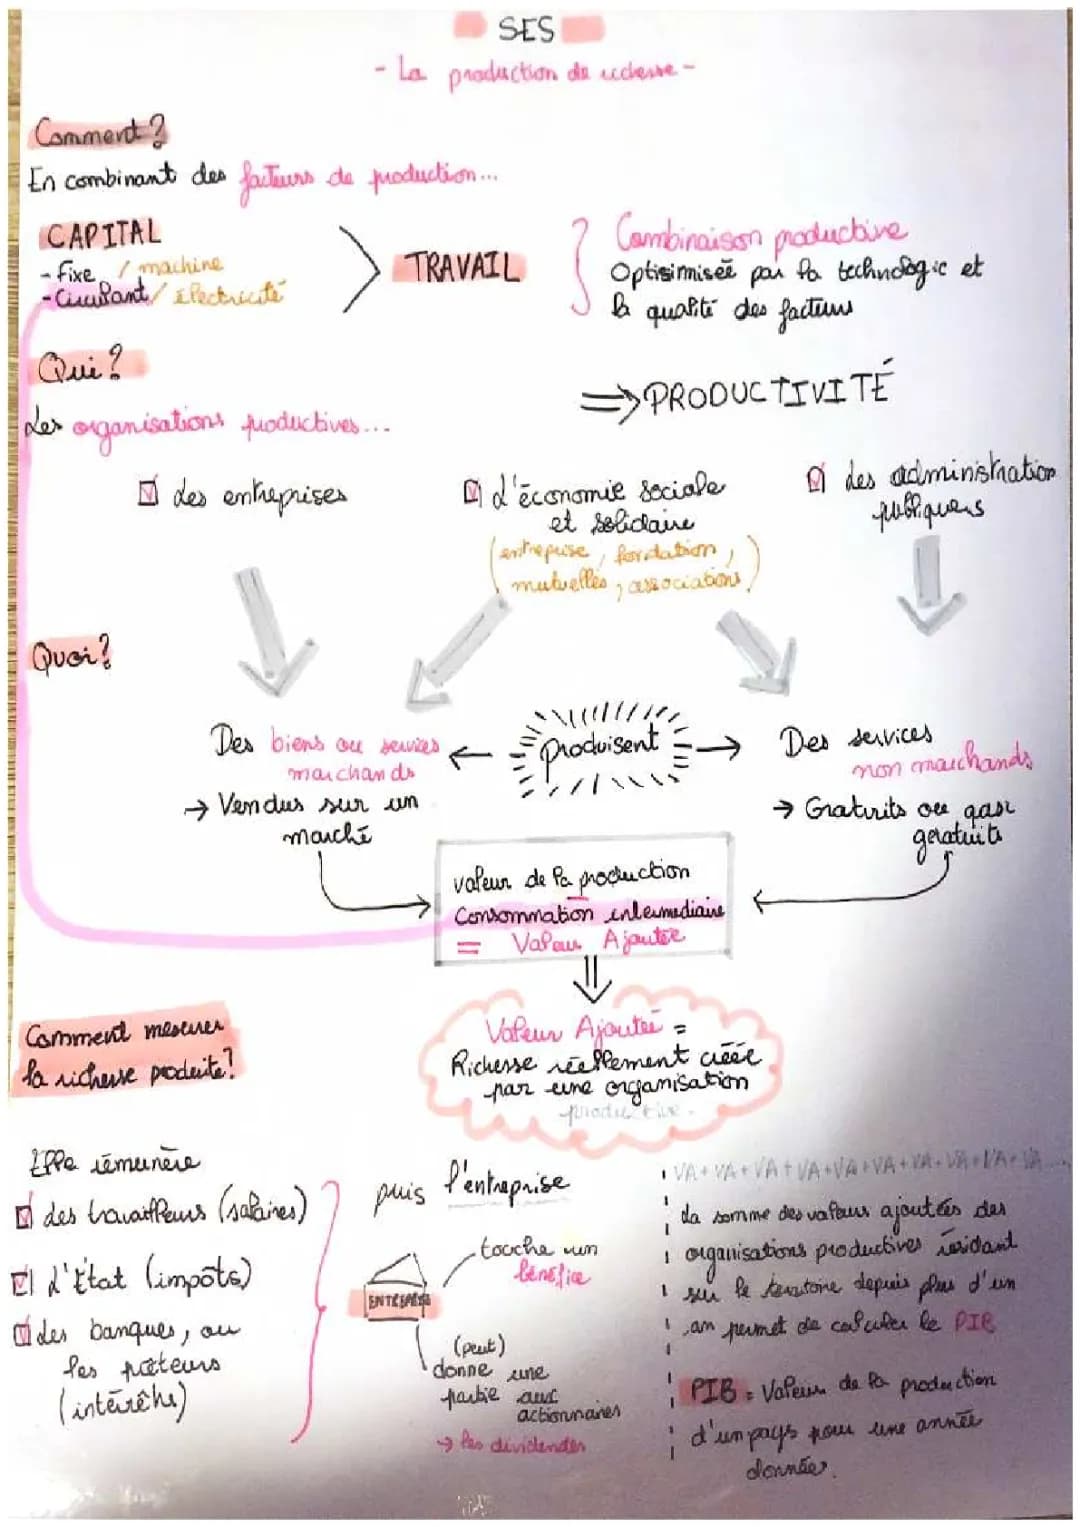 SES
- La production de richesse -
Comment ?
En combinant des facteurs de production...
CAPITAL
- Fixe / machine
- Circulant / électricité
TRAVAIL
Combinaison productive
Optisimisée par la technologie et
la qualité des facteurs
⇒ PRODUCTIVITÉ
Qui ?
Les organisations productives...
Les entreprises
L'économie sociale
et solidaire
(entreprise, fondation,
mutuelles, associations)
Les administration
publiques
Quoi ?
produisent
Des biens ou services
marchands
→ Vendus sur un
marché
Des services
non marchands
→ Gratuits ou quasi
gratuits
valeur de la production
Consommation intermediaire
= Valeur Ajoutée
Valeur Ajoutée =
Richesse réellement créée
par une organisation
productive.
Comment mesurer
la richesse produite ?
Elle rémunère
des travailleurs (salaires)
L'État (impôts)
des banques, ou
les prêteurs
(intérêts)
puis l'entreprise
touche un
bénéfice
ENTREPRISE
(peut)
donne une
partie aux
actionnaires
→ les dividendes
VA + VA + VA + VA + VA + VA + VA + VA + VA + VA ....
La somme des valeurs ajoutées des
organisations productives résidant
sur le territoire depuis plus d'un
an permet de calculer le PIB
PIB = Valeur de la production
d'un pays pour une année
donnée.